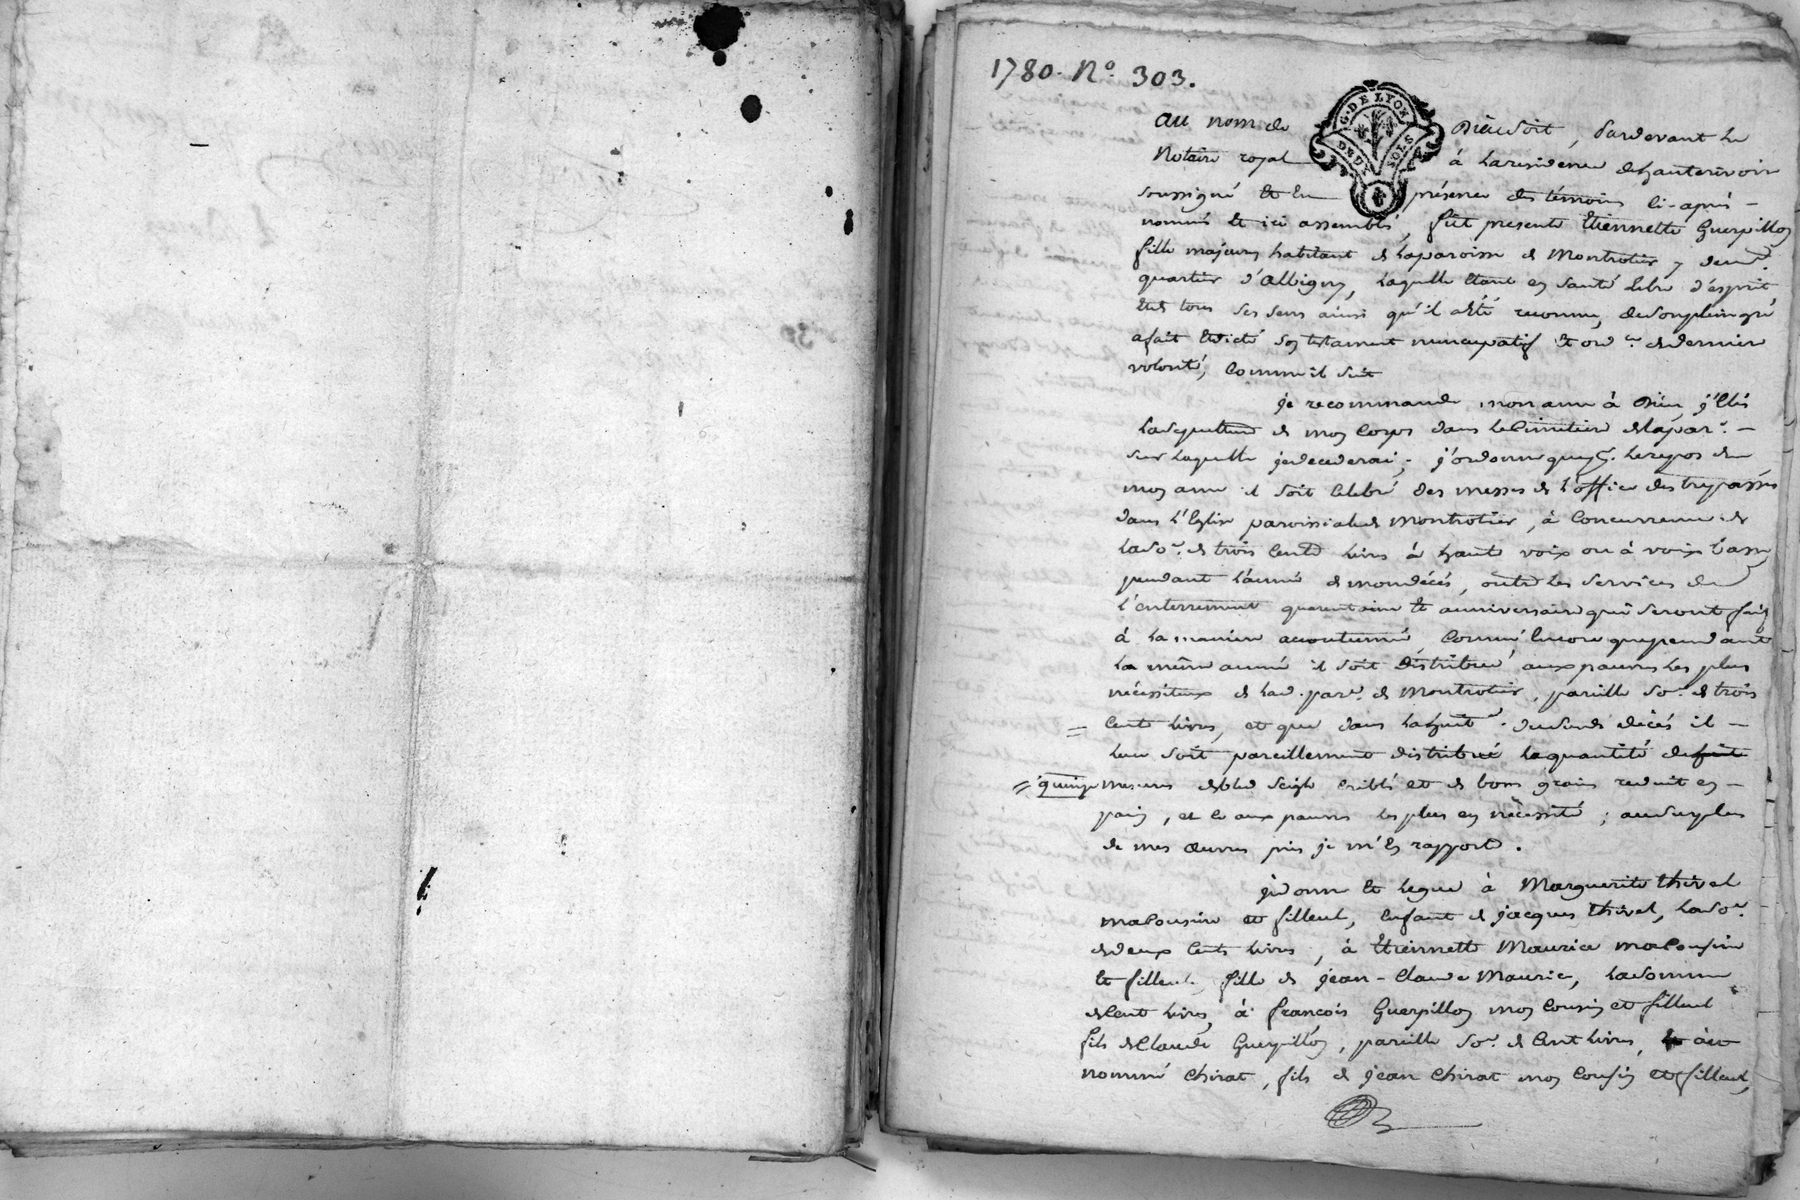 1780. N.º 303.
G. DE LYON
DE D. SOLS
au nom de Dieu soit, pardevant le
Notaire royal à la residence d'hauterivoire
soussigné et en présence des témoins ci-après
nommés et ici assemblés, fût presente Etiennette Guerpillon
fille majeure habitant de la paroisse de Montrotier, de
quartier d'albigny, laquelle étant en santé libre d'esprit
et de tous ses sens ainsi qu'il a été reconnu, de son plein gré
a fait et dicté son testament nuncupatif et ord.re de derniere
volonté, comme il suit
je recommande mon ame à Dieu, j'élis
la sepulture de mon corps dans le cimetiere de la par.se
sur laquelle je decederai; j'ordonne que p.r le repos de
mon ame il soit celebré des messes de l'office des trepassés
dans l'Eglise paroissiale de Montrotier, à concurrence de
la so.e de trois cents livres à haute voix ou à voix basse
pendant l'année de mon décés, outre les services de
l'enterrement quarantaine et anniversaire qui seront faits
à la maniere accoutumée, comme encore que pendant
la même année il soit distribué aux pauvres les plus
nécessiteux de lad. par.e de Montrotier, pareille so.e de trois
cents livres, et que dans la huit.e du sud. décés il
leur soit pareillement distribué la quantité de huit
quinze mesures de bled seigle criblé et de bon grain reduit en
pain, et ce aux pauvres les plus en nécessité; au surplus
de mes œuvres pies je m'en rapporte.
je donne et legue à Marguerite thivel
ma cousine et filleule, enfant de jacques thivel, la so.e
de deux cents livres, à Etiennette Maurice ma cousine
et filleule, fille de jean-Claude Maurice, la somme
de cent livres, à françois Guerpillon mon cousin et filleul
fils de Claude Guerpillon, pareille so.e de cent livres, au
nommé chirat, fils de jean chirat mon cousin et filleul,